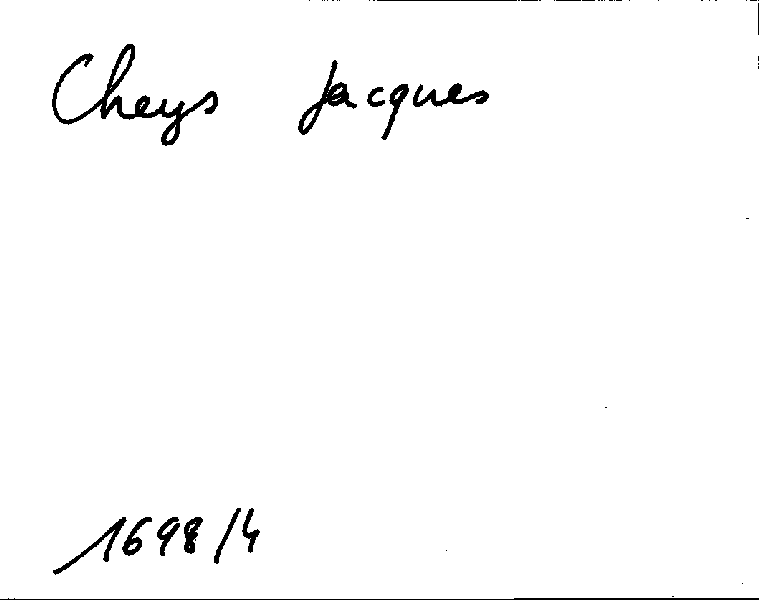 Cheys Jacques
1698/4